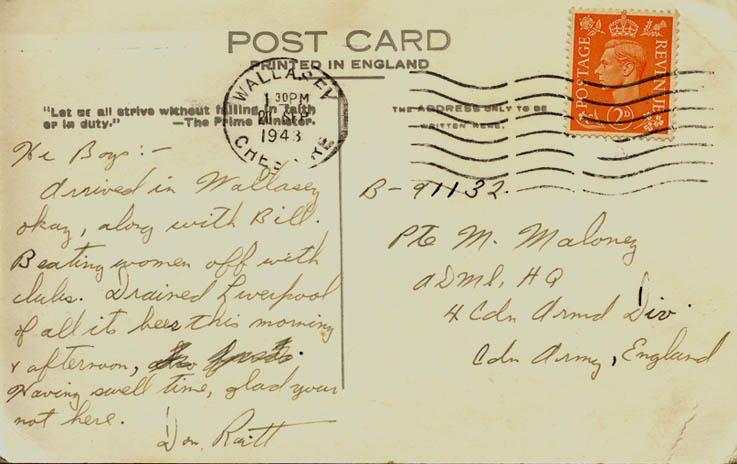 POST CARD
PRINTED IN ENGLAND
"Let us all strive without failing in faith
or in duty." —The Prime Minister.
THE ADDRESS ONLY TO BE
WRITTEN HERE.
WALLASEY
1 30PM
21 SEP
1943
CHESHIRE
POSTAGE
REVENUE
2D
Hi Boys:-
Arrived in Wallasey
okay, along with Bill.
Beating women off with
clubs. Drained Liverpool
of all its beer this morning
& afternoon,
Having swell time, glad your
not here.
Don Raitt
B-91132.
Pte M. Maloney
ADMS, HQ
4 Cdn Armd Div.
Cdn Army, England